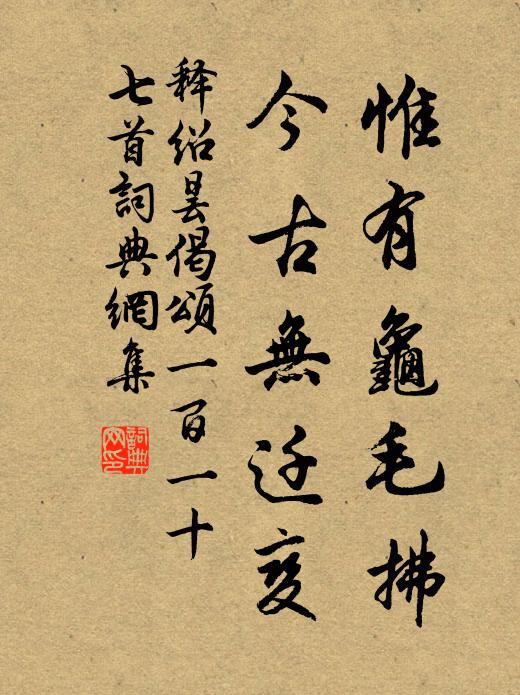 惟有龜毛拂
今古無迁变
释绍昙偈頌一百一十
七首詞典網集
詞典网印